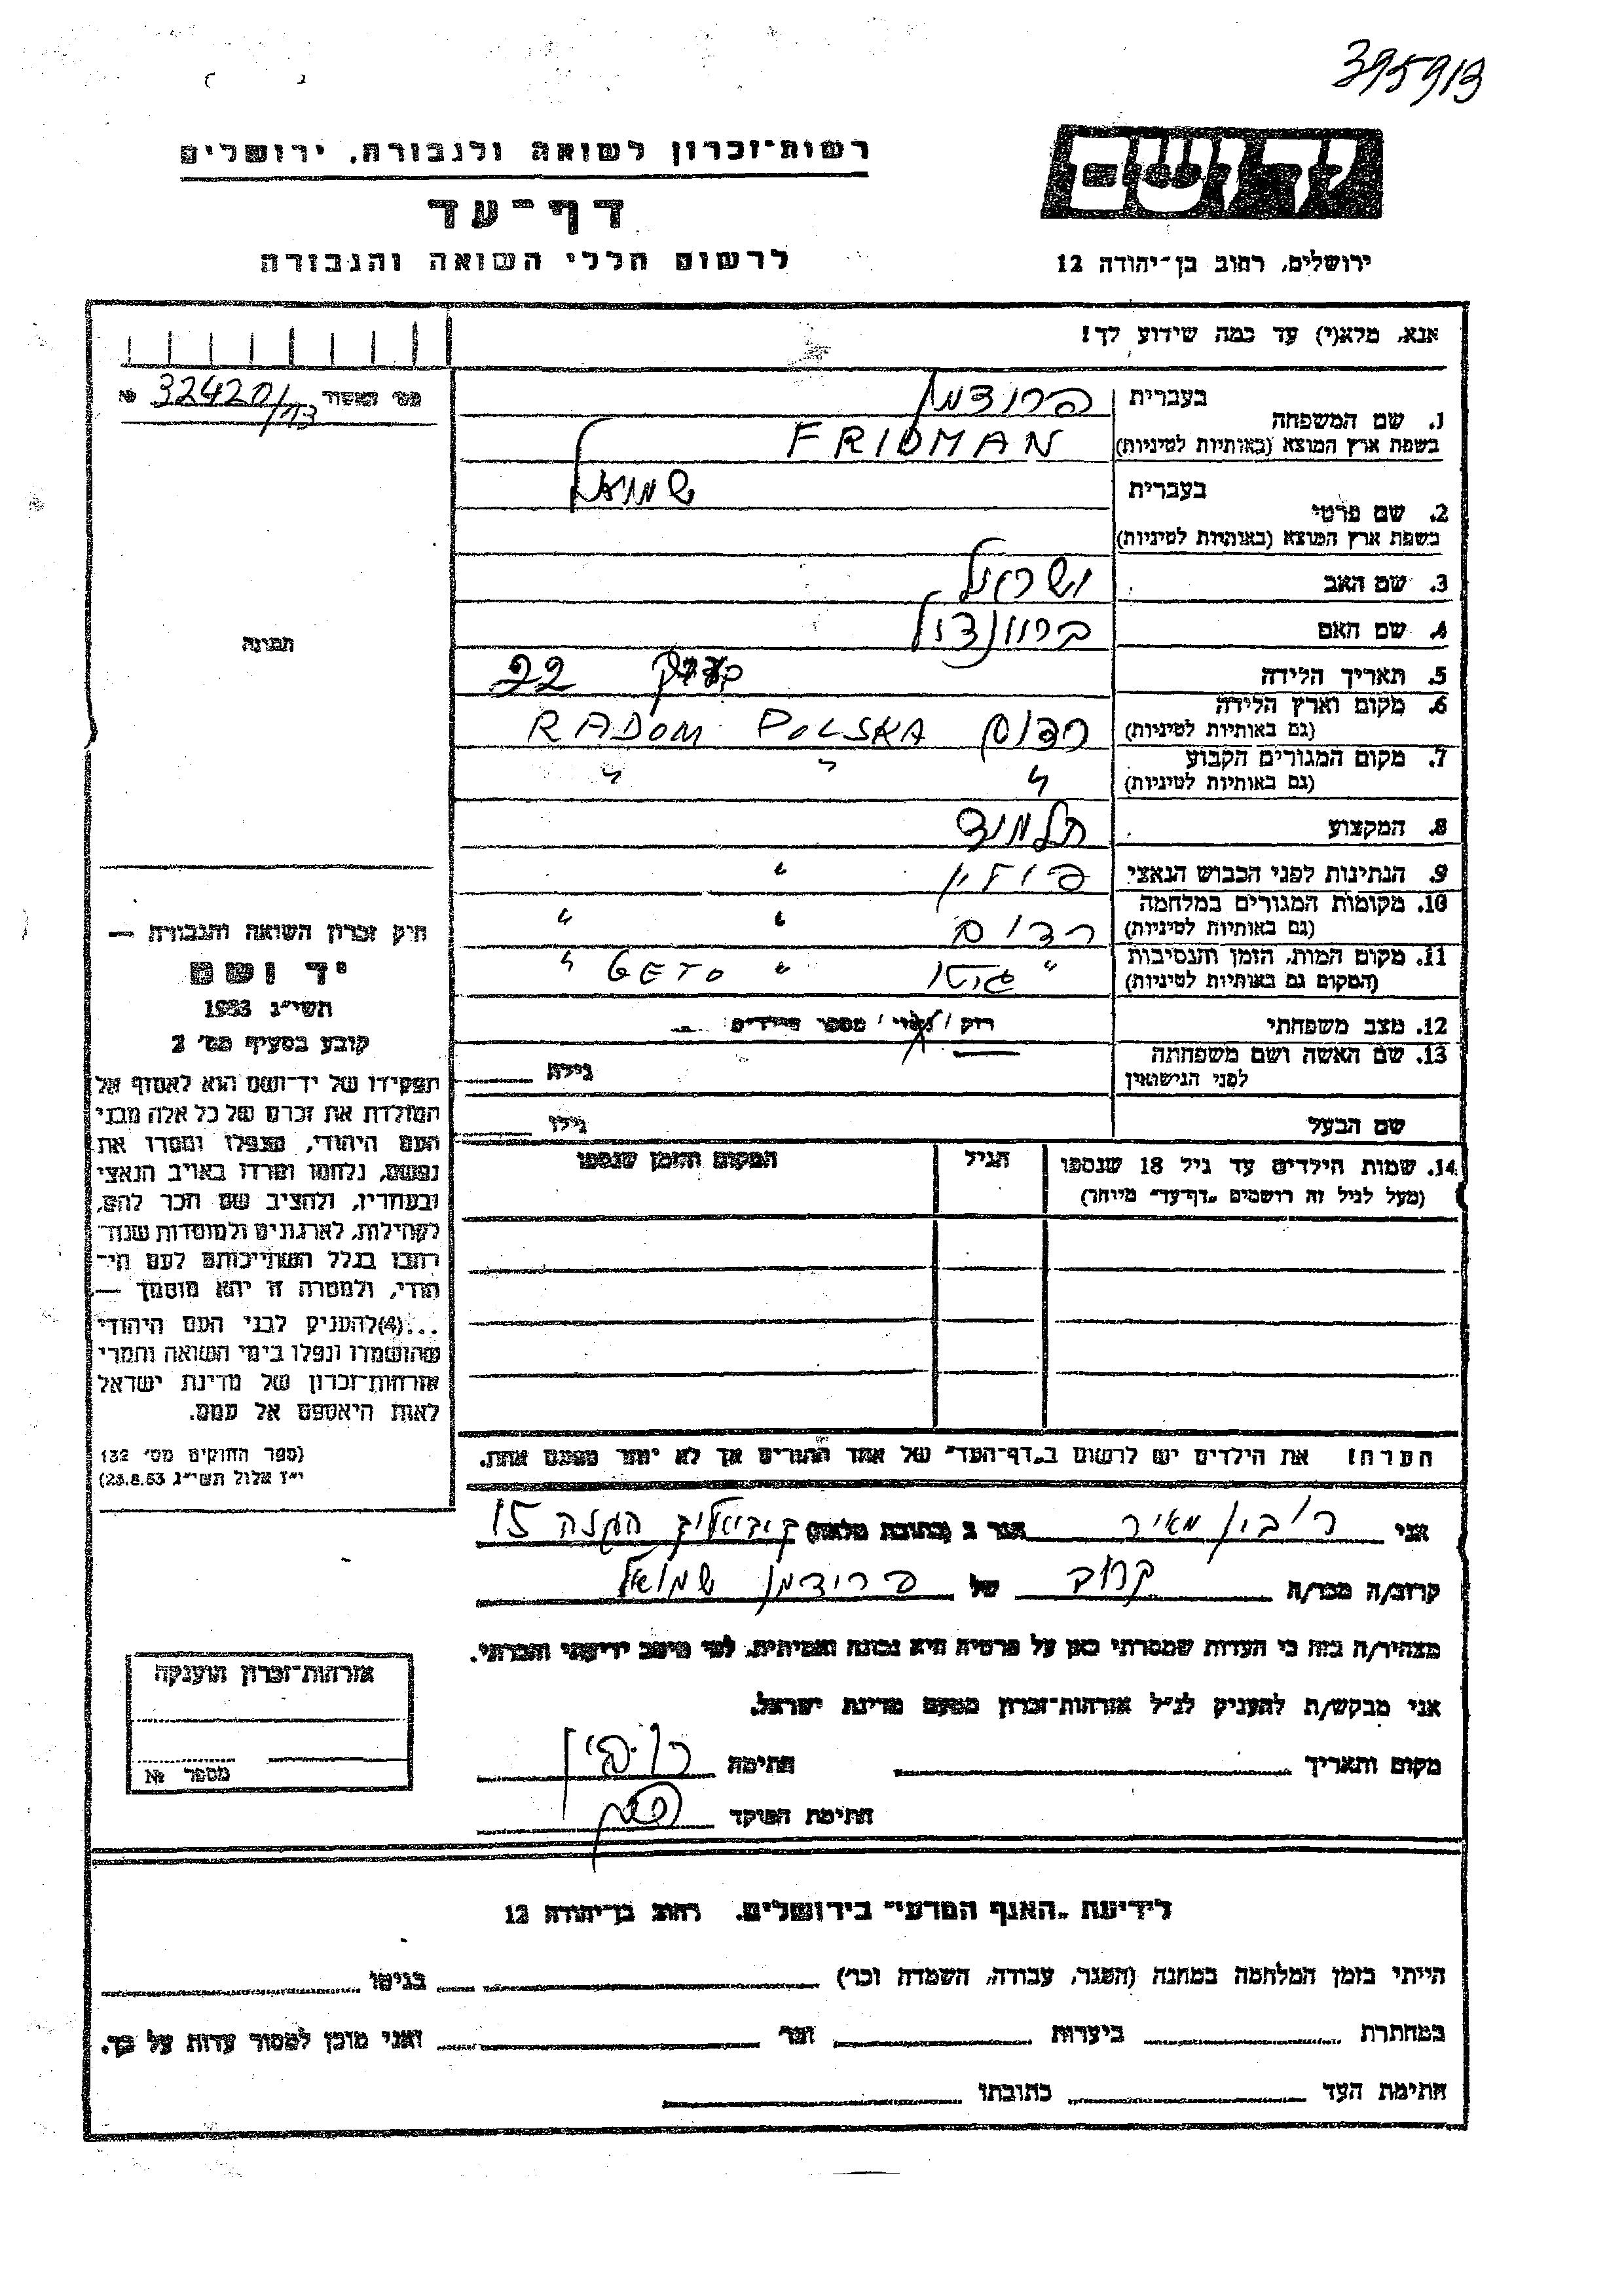 395913
יד ושם
רשות-זכרון לשואה ולגבורה, ירושלים
דף-עד
לרשום חללי השואה והגבורה
ירושלים, רחוב בן-יהודה 12
אנא, מלא(י) עד כמה שידוע לך!
מס' האשור 32420/13 №
1. שם המשפחה בעברית פרידמן
בשפת ארץ המוצא (באותיות לטיניות) FRIDMAN
2. שם פרטי בעברית שמואל
בשפת ארץ המוצא (באותיות לטיניות)
3. שם האב ישראל
4. שם האם
5. תאריך הלידה 22
6. מקום וארץ הלידה רדום RADOM POLSKA
(גם באותיות לטיניות)
7. מקום המגורים הקבוע " " "
(גם באותיות לטיניות)
8. המקצוע תלמיד
9. הנתינות לפני הכבוש הנאצי פולין "
10. מקומות המגורים במלחמה רדום " "
(גם באותיות לטיניות)
11. מקום המות, הזמן והנסיבות " גיטו " GETO "
(המקום גם באותיות לטיניות)
12. מצב משפחתי רוק / נשוי / מספר הילדים
13. שם האשה ושם משפחתה גילה
לפני הנישואין
שם הבעל גילו
14. שמות הילדים עד גיל 18 שנספו הגיל המקום והזמן שנספו
(מעל לגיל זה רושמים "דף-עד" מיוחד)
הערה! את הילדים יש לרשום ב"דף-העד" של אחד ההורים אך לא יותר מפעם אחת.
תמונה
חוק זכרון השואה והגבורה —
יד ושם
תשי"ג 1953
קובע בסעיף מס' 2
תפקידו של יד-ושם הוא לאסוף אל
המולדת את זכרם של כל אלה מבני
העם היהודי, שנפלו ומסרו את
נפשם, נלחמו ומרדו באויב הנאצי
ובעוזריו, ולהציב שם וזכר להם,
לקהילות, לארגונים ולמוסדות שנח-
רבו בגלל השתייכותם לעם הי-
הודי, ולמטרה זו יהא מוסמך —
...(4)להעניק לבני העם היהודי
שהושמדו ונפלו בימי השואה והמרי
אזרחות-זכרון של מדינת ישראל
לאות היאספם אל עמם.
(ספר החוקים מס' 132
י"ז אלול תשי"ג 28.8.53)
אני רובין מאיר הגר ב (כתובת מלאה) ק. ביאליק הגפן 15
קרוב/ה מכר/ה קרוב של פרידמן שמואל
מצהיר/ה בזה כי העדות שמסרתי כאן על פרטיה היא נכונה ואמיתית, לפי מיטב ידיעתי והכרתי.
אני מבקש/ת להעניק לנ"ל אזרחות-זכרון מטעם מדינת ישראל.
מקום ותאריך חתימה רובין
חתימת הפוקד
אזרחות-זכרון הוענקה
מספר №
לידיעת "האגף המדעי" בירושלים, רחוב בן-יהודה 12
הייתי בזמן המלחמה במחנה (הסגר, עבודה, השמדה וכו') בגיטו
במחתרת ביערות וכו' ואני מוכן למסור עדות על כך.
חתימת העד כתובתו